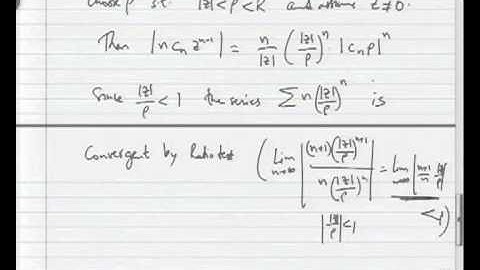 choose ρ s.t. |z| < ρ < R and assume z ≠ 0.
Then |n cₙ zⁿ⁻¹| = n/|z| (|z|/ρ)ⁿ |cₙ ρ|ⁿ
Since |z|/ρ < 1 the series Σ n (|z|/ρ)ⁿ is
Convergent by Ratio test ( lim n→∞ | (n+1)(|z|/ρ)ⁿ⁺¹ / n(|z|/ρ)ⁿ | = lim n→∞ | n+1/n |z|/ρ |
|z/ρ| < 1 < 1 )